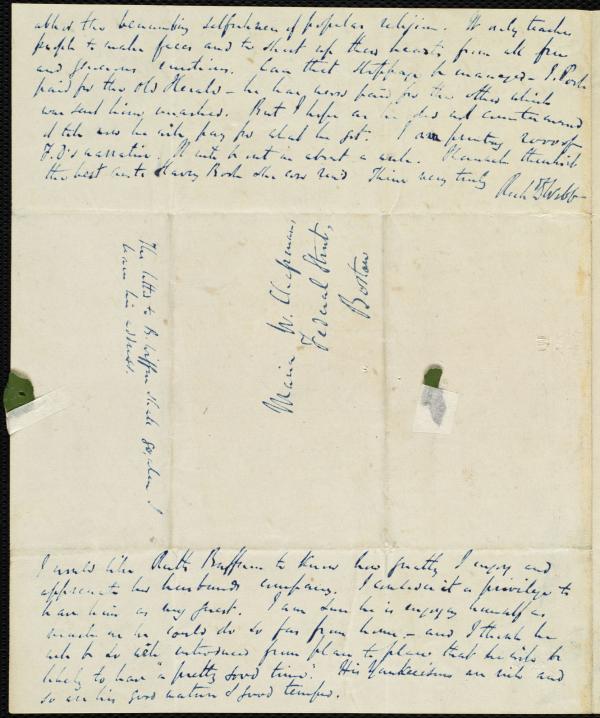 the benumbing selfishness of popular religion. It only teaches
people to make faces and to shut up their hearts from all free
and generous emotions. Can that stoppage be managed – J. Poole
paid for the Old Herald – he has never paid for the other which
was sent him, unasked. But I hope as he did not countermand
it till now he will pay for what he got. I am printing 2000 of
F. D's narrative. It will be out in about a week. Hannah thinks it
the best Anti Slavery Book she ever read Thine very truly
Richd D Webb –
The letter to B. Wiffen shall go, when I
learn his address.
Maria W. Chapman,
Federal Street,
Boston
I would like Ruth Buffum to know how greatly I enjoy and
appreciate her husband's company. I consider it a privilege to
have him as my guest. I am sure he is enjoying himself as
much as he could do so far from home – and I think he
will be so well introduced from place to place that he will be
likely to have "a pretty good time". His Yankeeisms are rich and
so are his good nature & good temper.